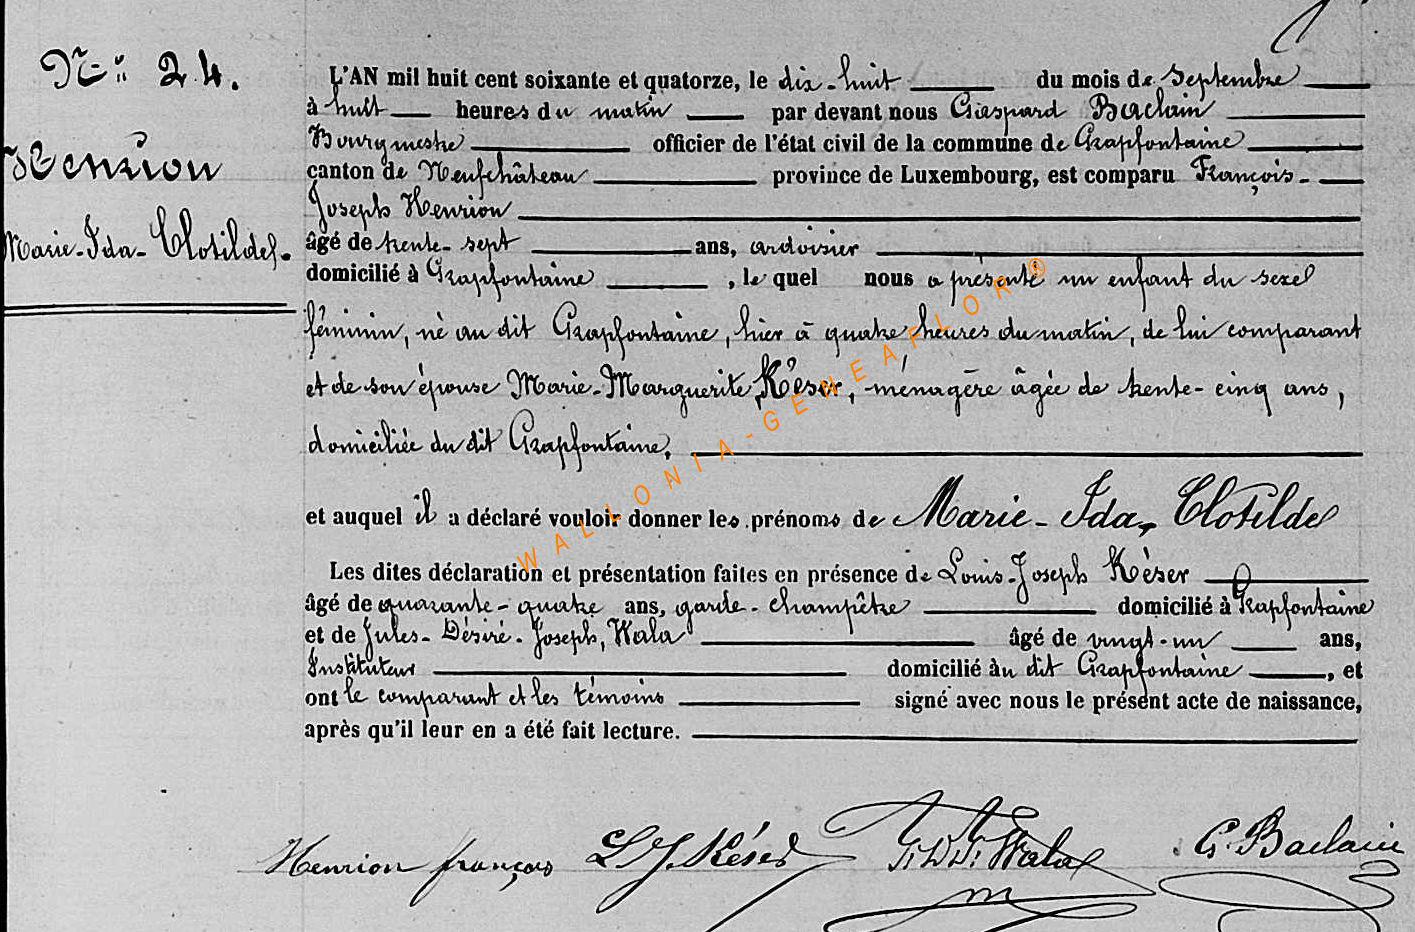 N° 24.
Henrion
Marie-Ida-Clotilde.
L'AN mil huit cent soixante et quatorze, le dix-huit du mois de Septembre
à huit heures du matin par devant nous Gaspard Baclain
Bourgmestre officier de l'état civil de la commune de Grapfontaine
canton de Neufchâteau province de Luxembourg, est comparu François-
Joseph Henrion
âgé de trente-sept ans, ardoisier
domicilié à Grapfontaine, le quel nous a présenté un enfant du sexe
féminin, né au dit Grapfontaine, hier à quatre heures du matin, de lui comparant
et de son épouse Marie-Marguerite Késer, ménagère âgée de trente-cinq ans,
domiciliée du dit Grapfontaine,
et auquel il a déclaré vouloir donner les prénoms de Marie-Ida, Clotilde
Les dites déclaration et présentation faites en présence de Louis-Joseph Késer
âgé de quarante-quatre ans, garde-champêtre domicilié à Grapfontaine
et de Jules-Désiré-Joseph, Wala âgé de vingt-un ans,
Instituteur domicilié àu dit Grapfontaine, et
ont le comparant et les témoins signé avec nous le présent acte de naissance,
après qu'il leur en a été fait lecture.
Henrion françois L. J. Késer J. D. J. Wala G. Baclain
WALLONIA-GENEAFLOR®